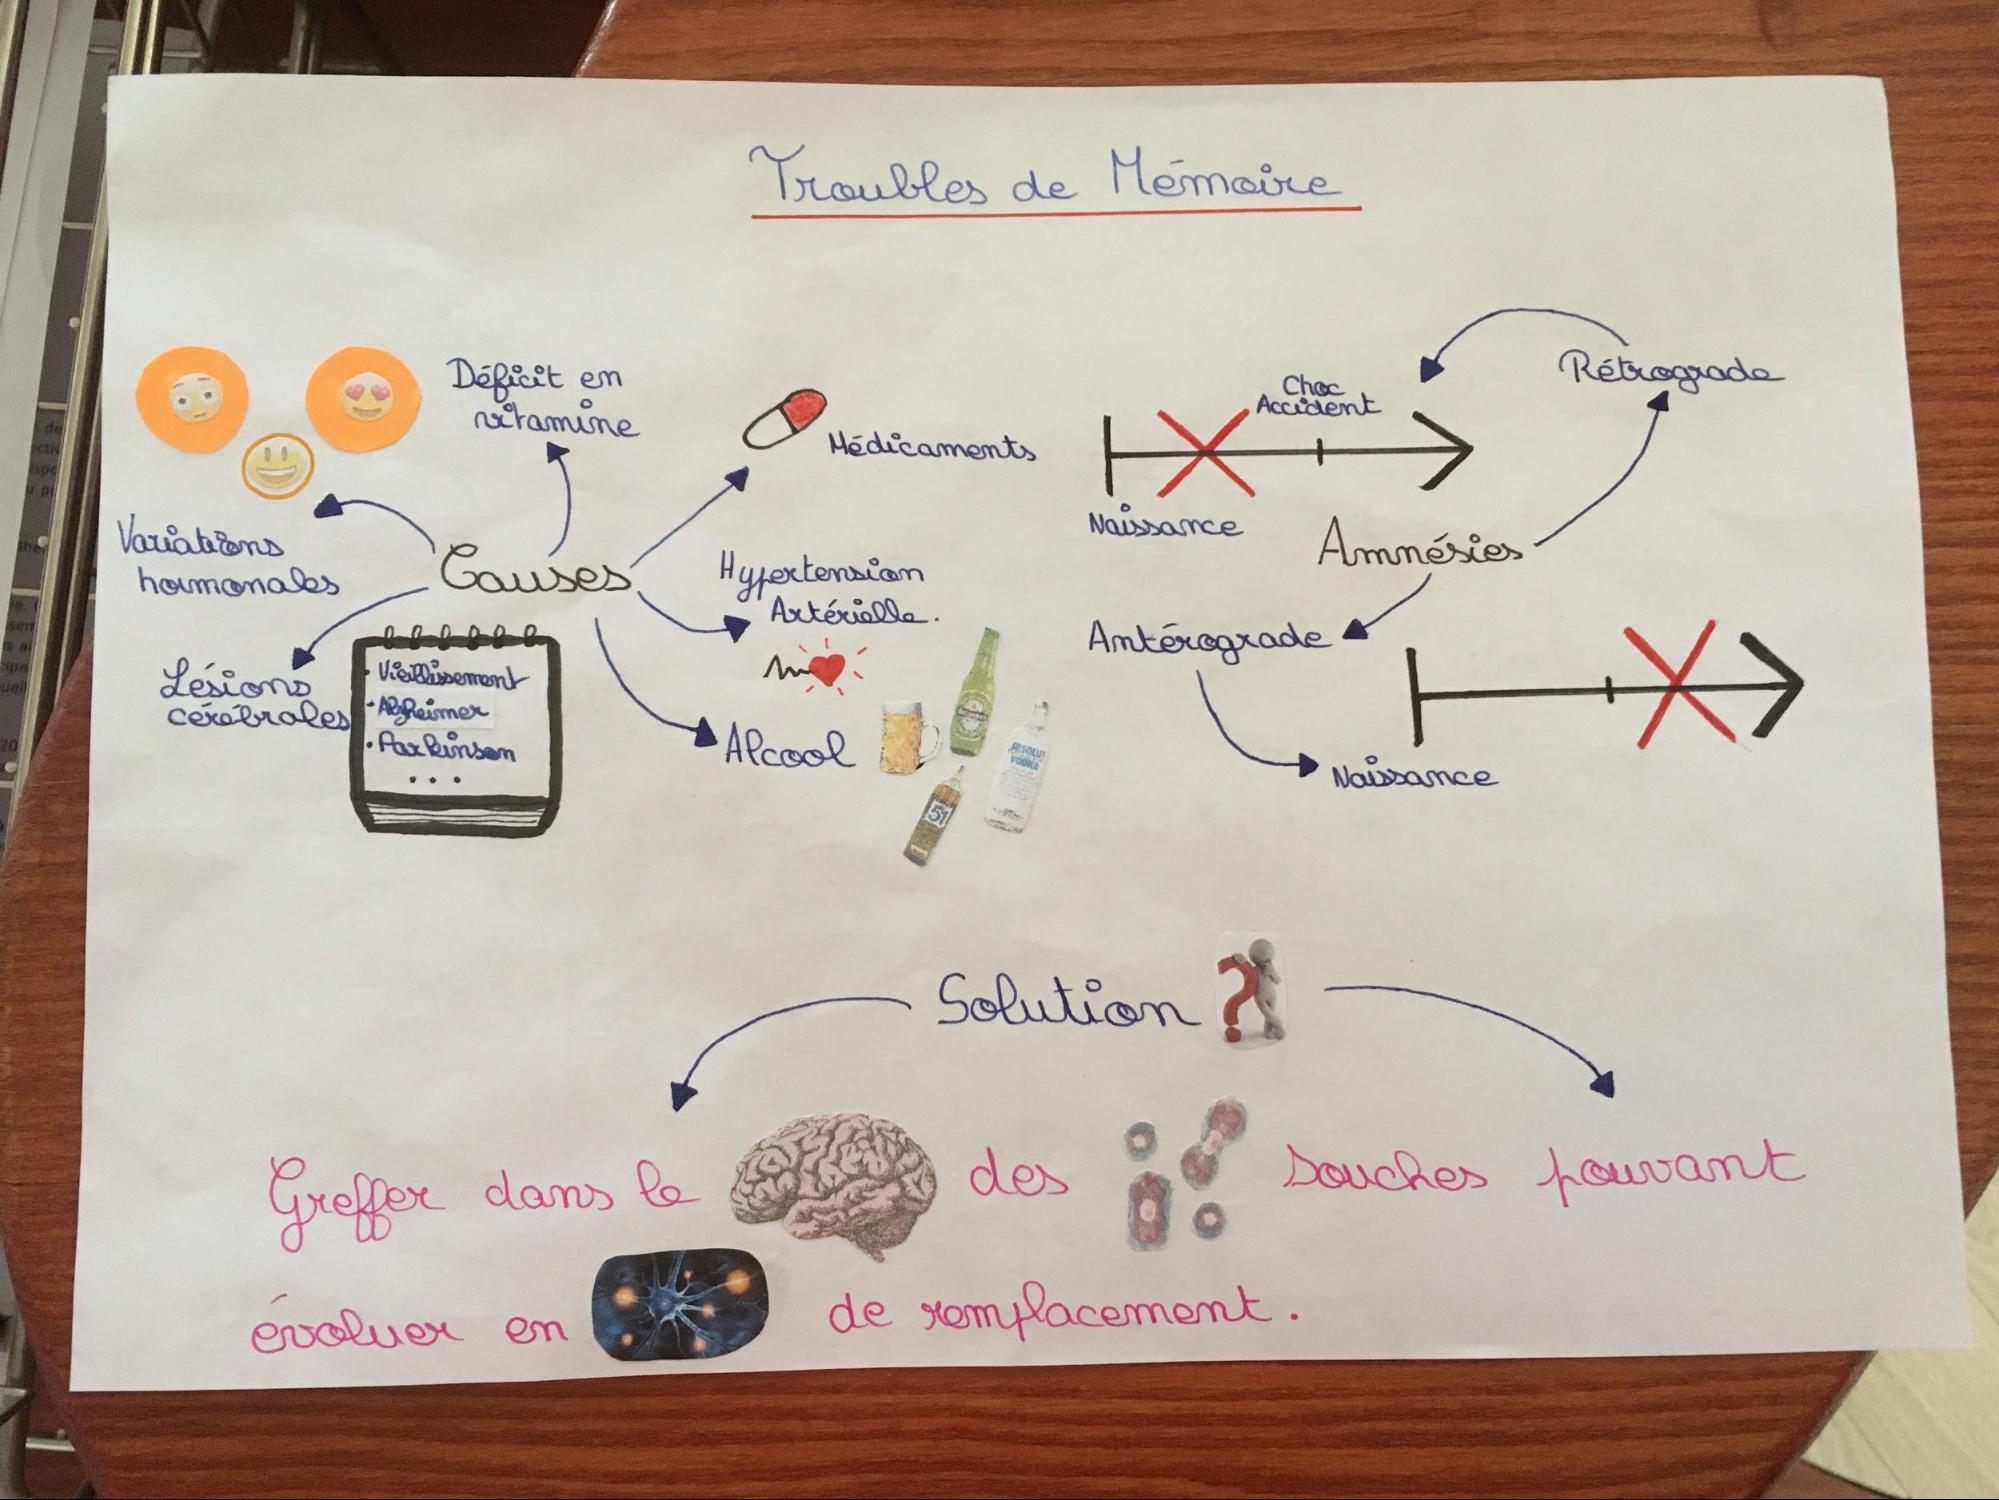 Troubles de Mémoire
Déficit en
vitamine
Médicaments
Variations
hormonales
Causes
Hypertension
Artérielle.
Lésions
cérébrales
• Vieillissement
• Alzheimer
• Parkinson
...
Alcool
51
ABSOLUT
VODKA
Rétrograde
Choc
Accident
Naissance
Amnésies
Antérograde
Naissance
Solution ?
Greffer dans le des souches pouvant
évoluer en de remplacement.